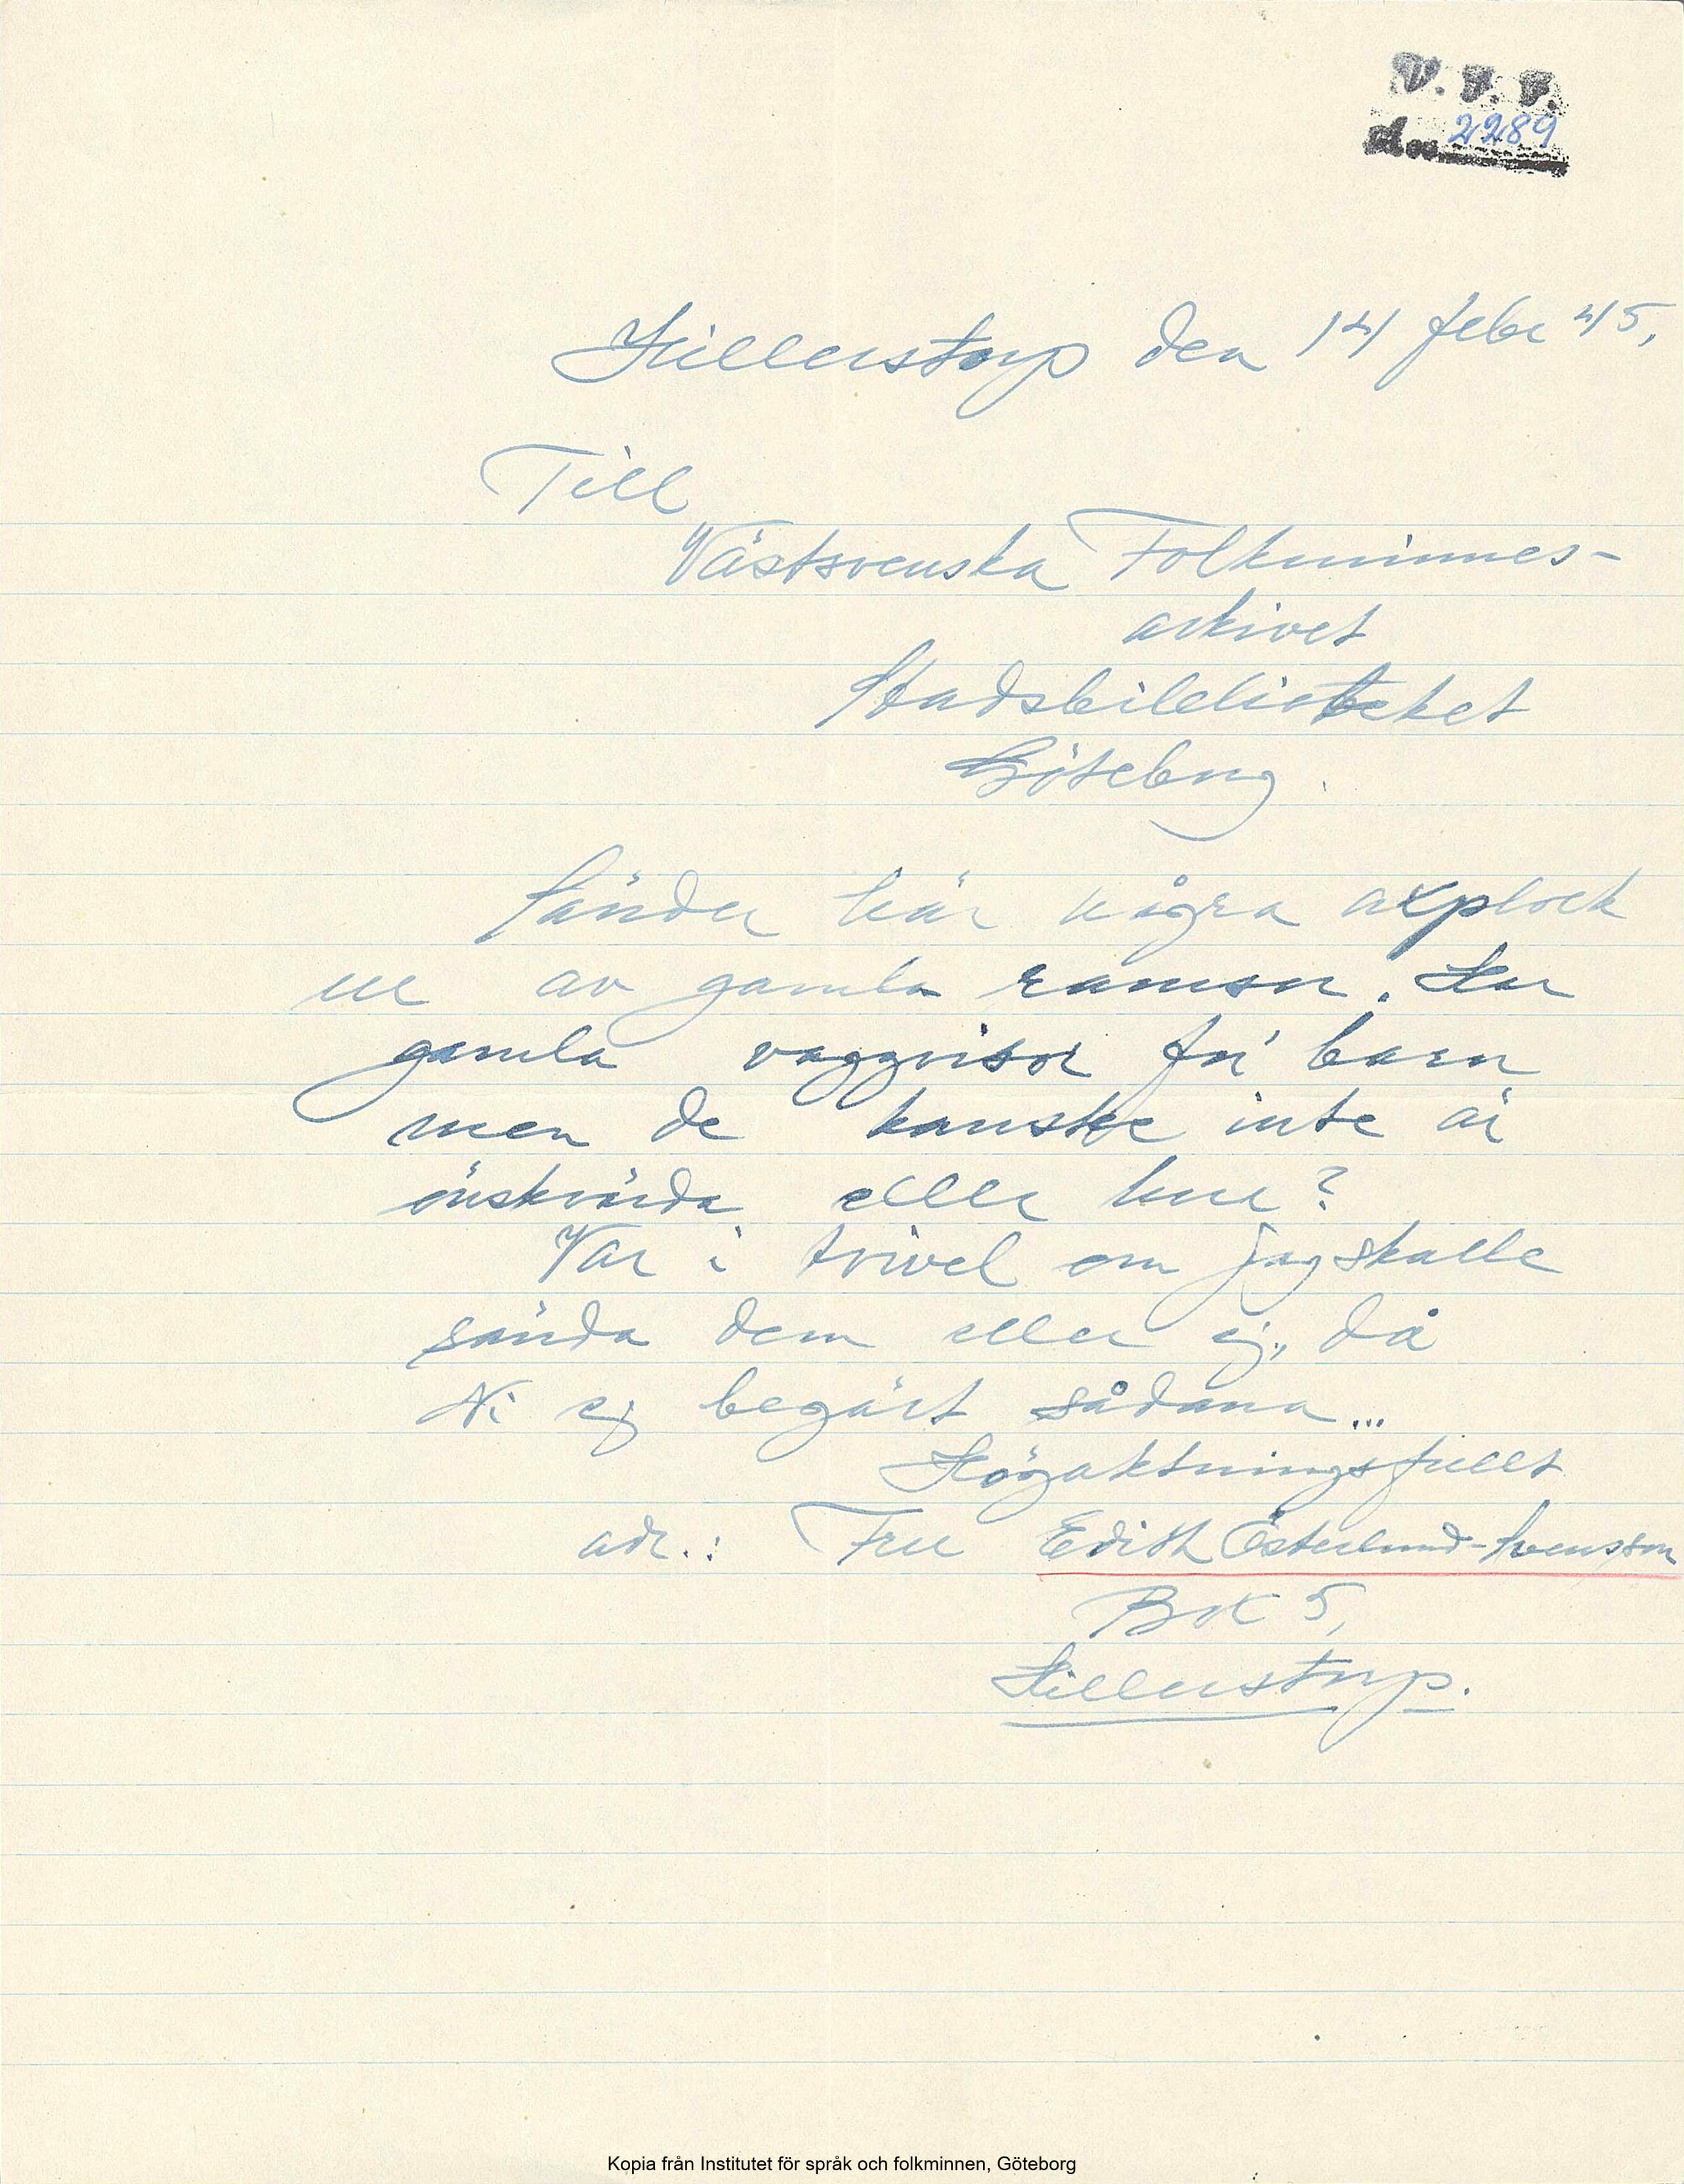 V. F. F.
Acc. 2289
Hillerstorp den 14 febr 45.
Till
Västsvenska Folkminnes-
arkivet
Stadsbiblioteket
Göteborg.
Sänder här några axplock
ur av gamla ramsor. Har
gamla vaggvisor för barn
men de kanske inte är
önskvärda eller hur?
Var i tvivel om jag skulle
sända dem eller ej, då
Ni ej begärt sådana...
Högaktningsfullt
adr.: Fru Edith Österlund-Svensson
Box 5,
Hillerstorp.
Kopia från Institutet för språk och folkminnen, Göteborg